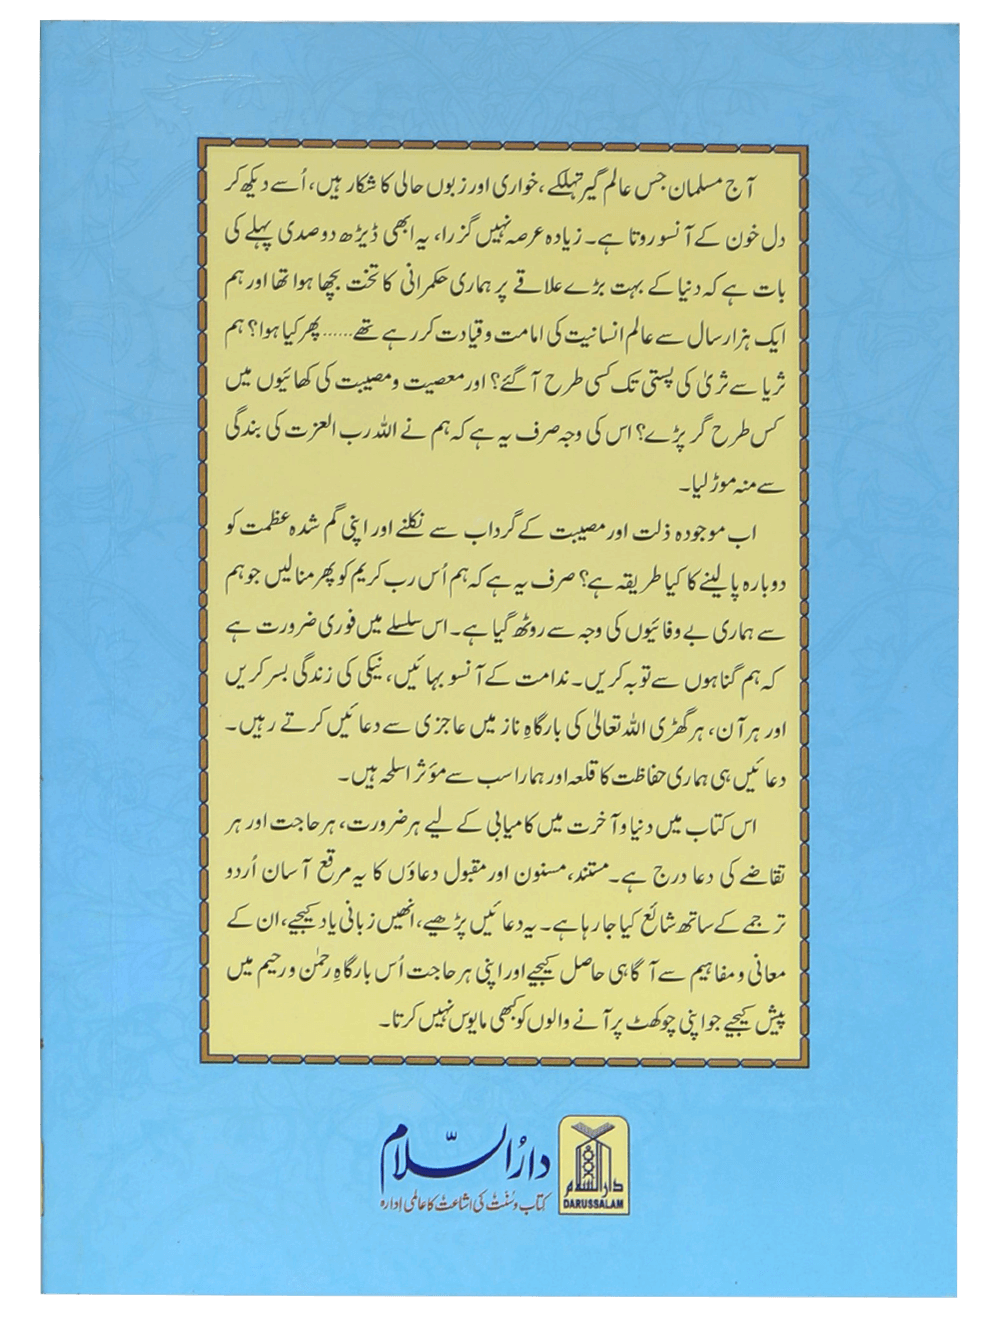 آج مسلمان جس عالم گیر تہلکے، خواری اور زبوں حالی کا شکار ہیں، اُسے دیکھ کر
دل خون کے آنسو روتا ہے۔ زیادہ عرصہ نہیں گزرا، یہ ابھی ڈیڑھ دو صدی پہلے کی
بات ہے کہ دنیا کے بہت بڑے علاقے پر ہماری حکمرانی کا تخت بچھا ہوا تھا اور ہم
ایک ہزار سال سے عالم انسانیت کی امامت و قیادت کر رہے تھے...... پھر کیا ہوا؟ ہم
ثریا سے ثریٰ کی پستی تک کسی طرح آ گئے؟ اور معصیت و مصیبت کی کھائیوں میں
کس طرح گر پڑے؟ اس کی وجہ صرف یہ ہے کہ ہم نے اللہ رب العزت کی بندگی
سے منہ موڑ لیا۔
اب موجودہ ذلت اور مصیبت کے گرداب سے نکلنے اور اپنی گم شدہ عظمت کو
دوبارہ پا لینے کا کیا طریقہ ہے؟ صرف یہ ہے کہ ہم اُس رب کریم کو پھر منا لیں جو ہم
سے ہماری بے وفائیوں کی وجہ سے روٹھ گیا ہے۔ اس سلسلے میں فوری ضرورت ہے
کہ ہم گناہوں سے توبہ کریں۔ ندامت کے آنسو بہائیں، نیکی کی زندگی بسر کریں
اور ہر آن، ہر گھڑی اللہ تعالیٰ کی بارگاہِ ناز میں عاجزی سے دعائیں کرتے رہیں۔
دعائیں ہی ہماری حفاظت کا قلعہ اور ہمارا سب سے مؤثر اسلحہ ہیں۔
اس کتاب میں دنیا و آخرت میں کامیابی کے لیے ہر ضرورت، ہر حاجت اور ہر
تقاضے کی دعا درج ہے۔ مستند، مسنون اور مقبول دعاؤں کا یہ مرقع آسان اُردو
ترجمے کے ساتھ شائع کیا جا رہا ہے۔ یہ دعائیں پڑھیے، انھیں زبانی یاد کیجیے، ان کے
معانی و مفاہیم سے آگاہی حاصل کیجیے اور اپنی ہر حاجت اُس بارگاہِ رحمٰن و رحیم میں
پیش کیجیے جو اپنی چوکھٹ پر آنے والوں کو کبھی مایوس نہیں کرتا۔
دارُالسّلام
کتاب و سُنّت کی اشاعت کا عالمی ادارہ
دارالسلام
DARUSSALAM